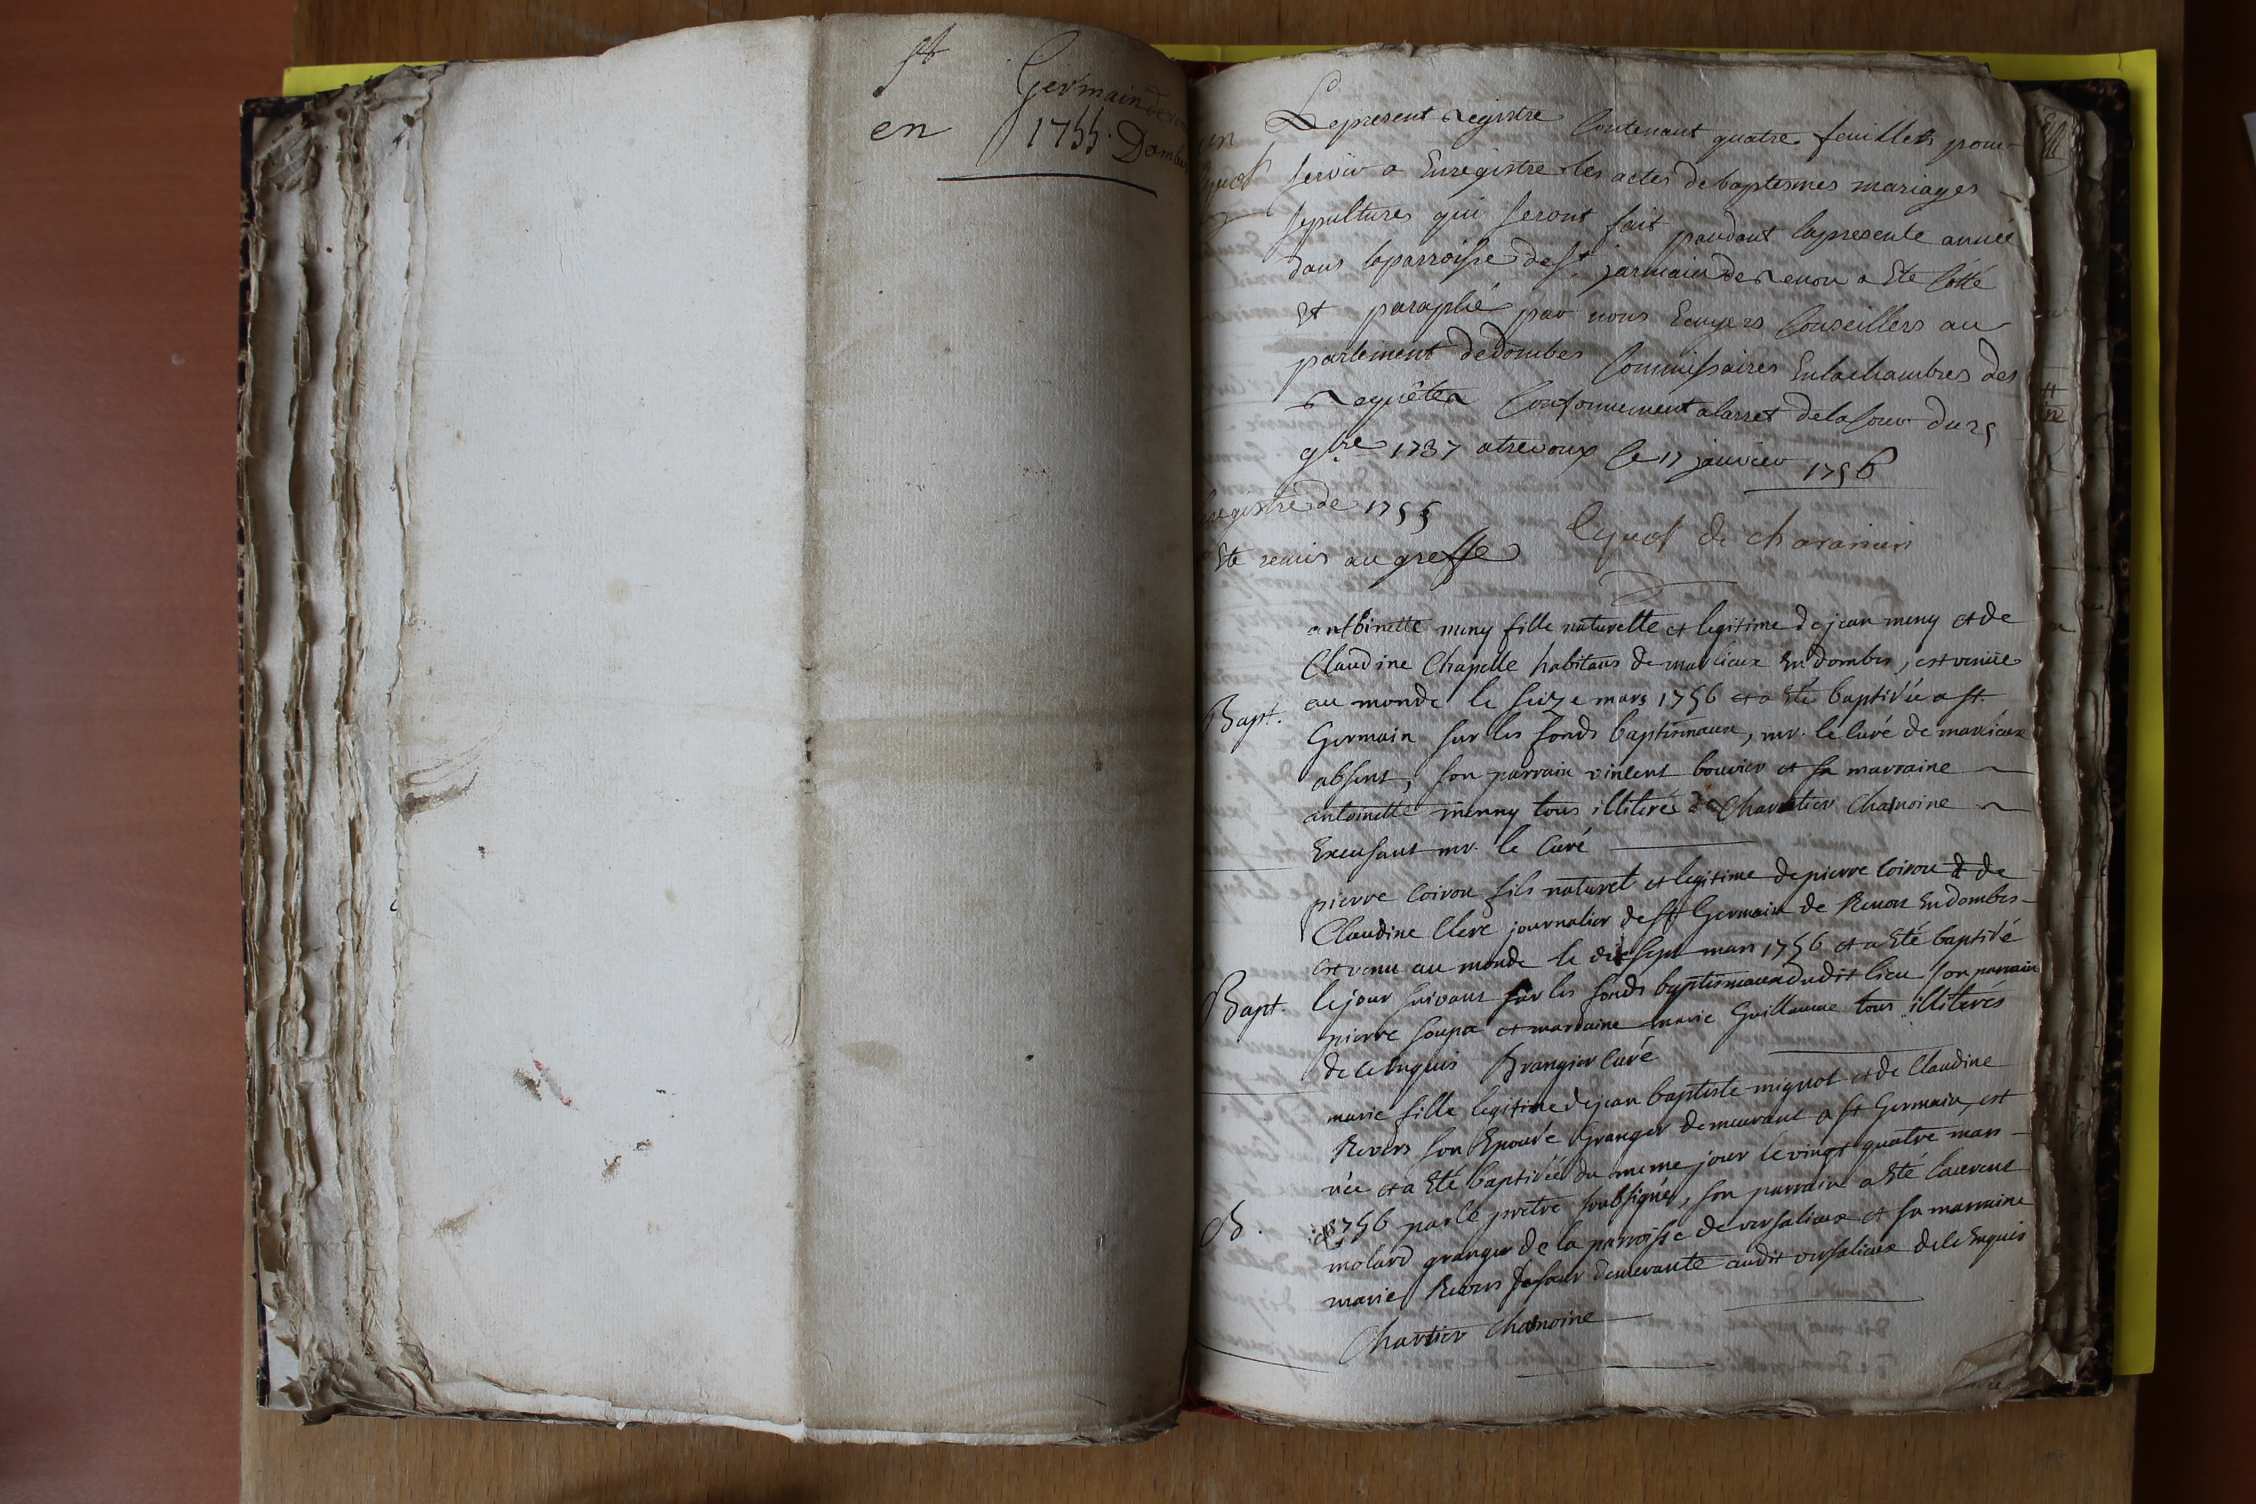 st Germain de
en 1755. Dombes
Le present registre Contenant quatre feuillets pour
servir a Enregistre les actes de baptesmes mariages
sepultures qui seront fait pandant lapresente année
dans laparroisse de st jermain de renon a Eté Cotté
et paraphé par nous Ecuyers Conseillers au
parlement de dombes Commissaires En la chambres des
requêtes Conformement alarret de la Cour du 25
9bre 1737 a trevoux le 17 janvier 1756
registre de 1755
Eté remis au greffe
Cyuot de
antoinette meny fille naturelle et legitime de jean meny et de
Claudine Chapelle habitans de marlieux En dombes, est venüe
au monde le seize mars 1756 et a Eté baptisée a st.
Bapt.
Germain sur les fonds baptismaux, mr. le Curé de marlieux
absent, son parrain vincent bouvier et sa marraine
antoinette menny tous illiteré Charetier Chanoine
Excusant mr. le Curé
pierre Coiron fils naturel et legitime de pierre Coiron & de
Claudine Clerc journalier de st Germain de Renon En dombes
est venu au monde le dix sept mars 1756 et a Eté baptisé
Bapt.
le jour suivant sur les fonds baptismaux dudit lieu son parrain
pierre soupa et marraine marie Guillaume tous illiterés
de ce Enquis Brangier Curé
marie fille legitime de jean baptiste mignot et de Claudine
Revers son Epouse Granger demeurant a st Germain, est
née et a Eté baptisée du meme jour le vingt quatre mars
B.
1756 par le pretre soubsigné, son parrain a Eté laurent
molard granger de la parroisse de versalieux et sa marraine
marie Revers sa soeur demeurante audit versalieux de ce Enquis
Chartier Chanoine